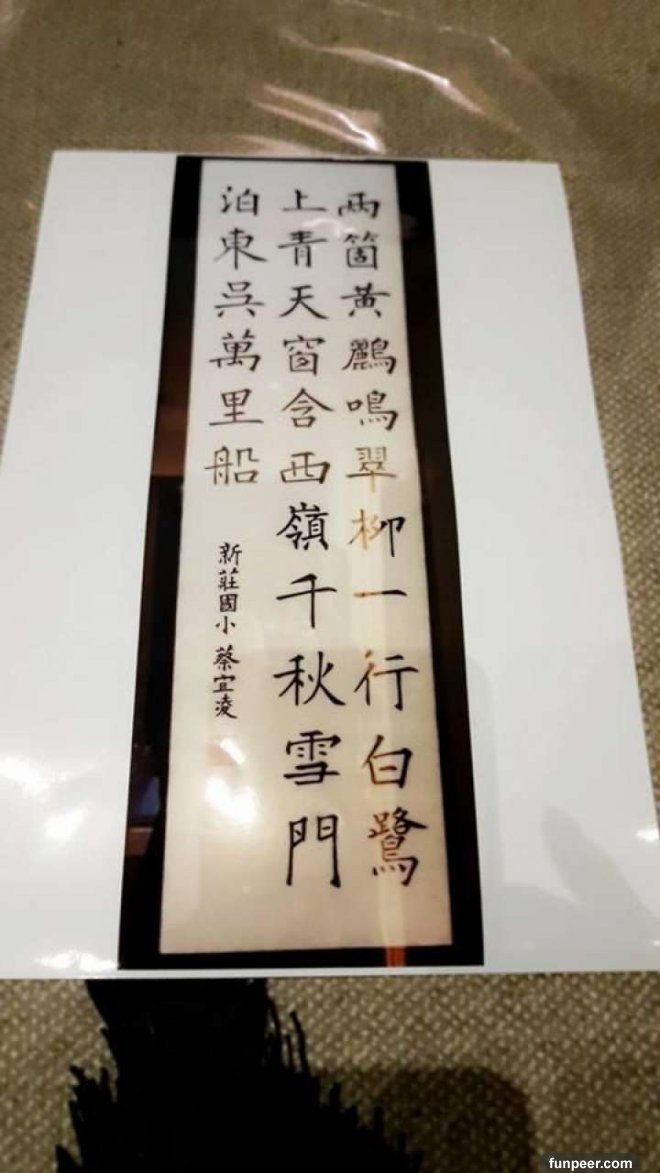 兩箇黃鸝鳴翠柳一行白鷺
上青天窗含西嶺千秋雪門
泊東吳萬里船
新莊國小 蔡宜凌
funpeer.com